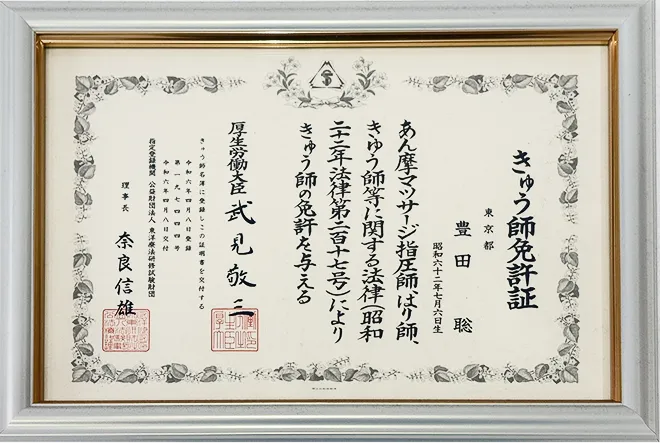 きゅう師免許証
東京都
豊田 聡
昭和六十二年七月六日生
あん摩マッサージ指圧師、はり師、
きゅう師等に関する法律(昭和
二十二年法律第二百十七号)により
きゅう師の免許を与える
厚生労働大臣 武見敬三
きゅう師名簿に登録しこの証明書を交付する
令和六年四月八日登録
第一九七四四四号
令和六年四月八日交付
指定登録機関 公益財団法人 東洋療法研修試験財団
理事長 奈良信雄